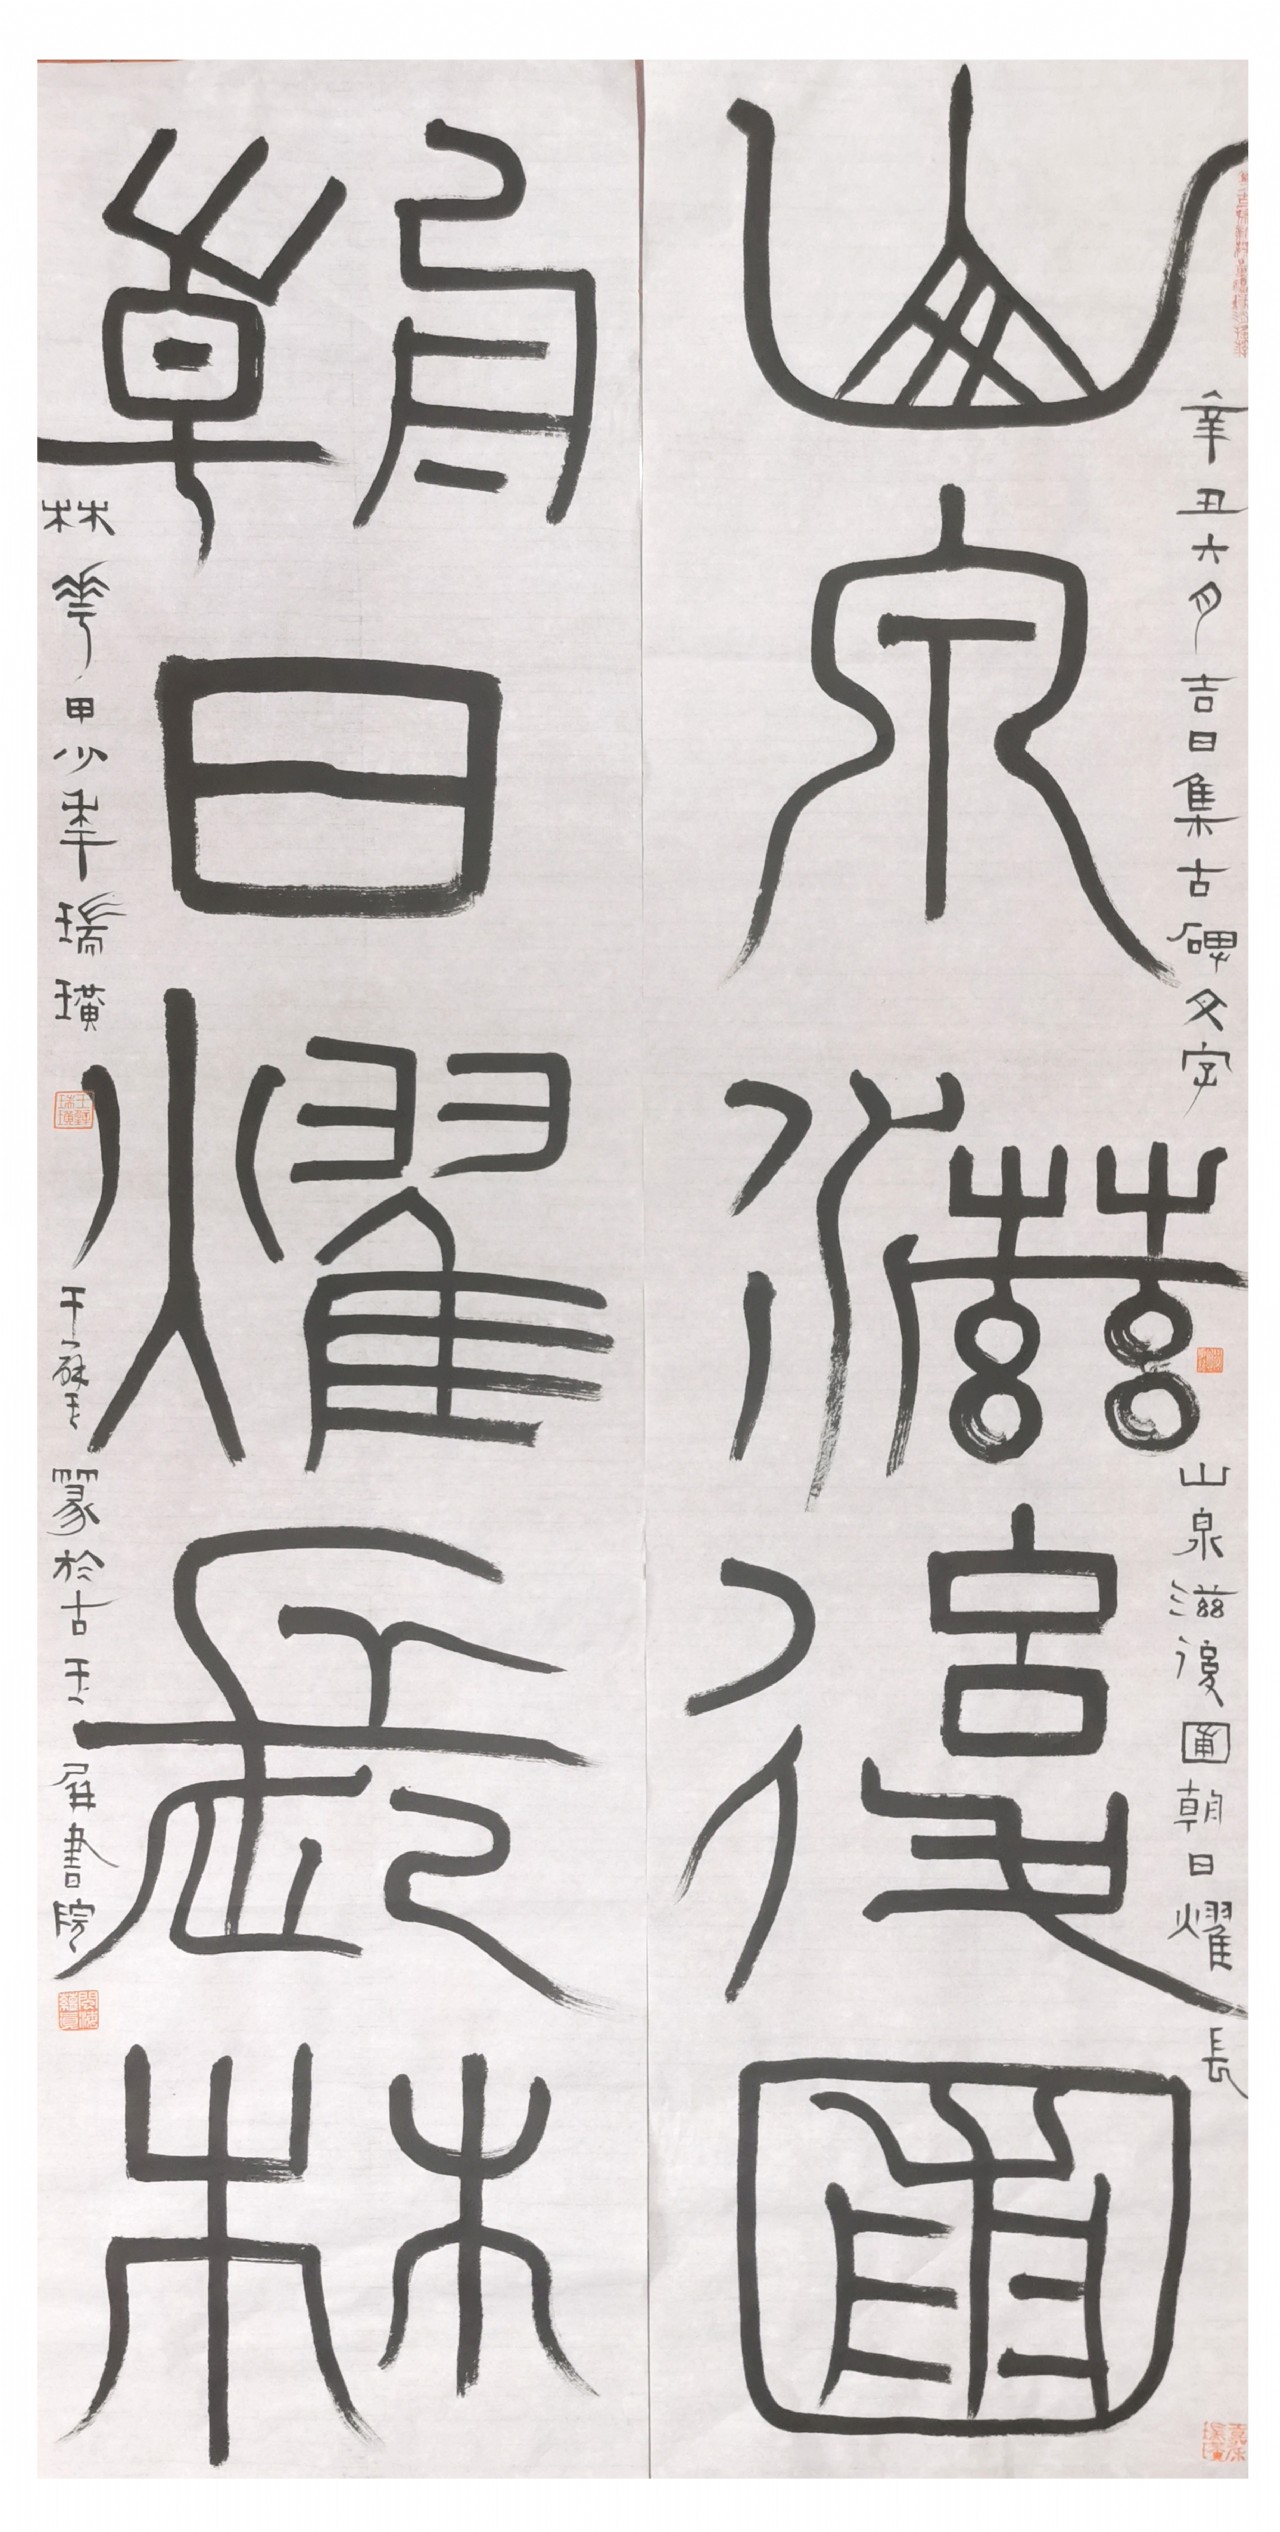 山泉滋復圃
朝日耀長林
辛丑六月吉日集古碑文字
山泉滋復圃朝日耀長
林華甲少年瑞璜
篆於古玉屏書院